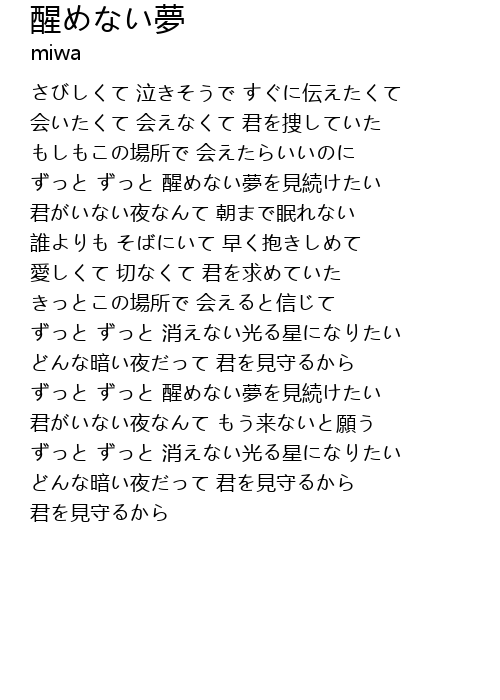 醒めない夢
miwa
さびしくて 泣きそうで すぐに伝えたくて
会いたくて 会えなくて 君を捜していた
もしもこの場所で 会えたらいいのに
ずっと ずっと 醒めない夢を見続けたい
君がいない夜なんて 朝まで眠れない
誰よりも そばにいて 早く抱きしめて
愛しくて 切なくて 君を求めていた
きっとこの場所で 会えると信じて
ずっと ずっと 消えない光る星になりたい
どんな暗い夜だって 君を見守るから
ずっと ずっと 醒めない夢を見続けたい
君がいない夜なんて もう来ないと願う
ずっと ずっと 消えない光る星になりたい
どんな暗い夜だって 君を見守るから
君を見守るから